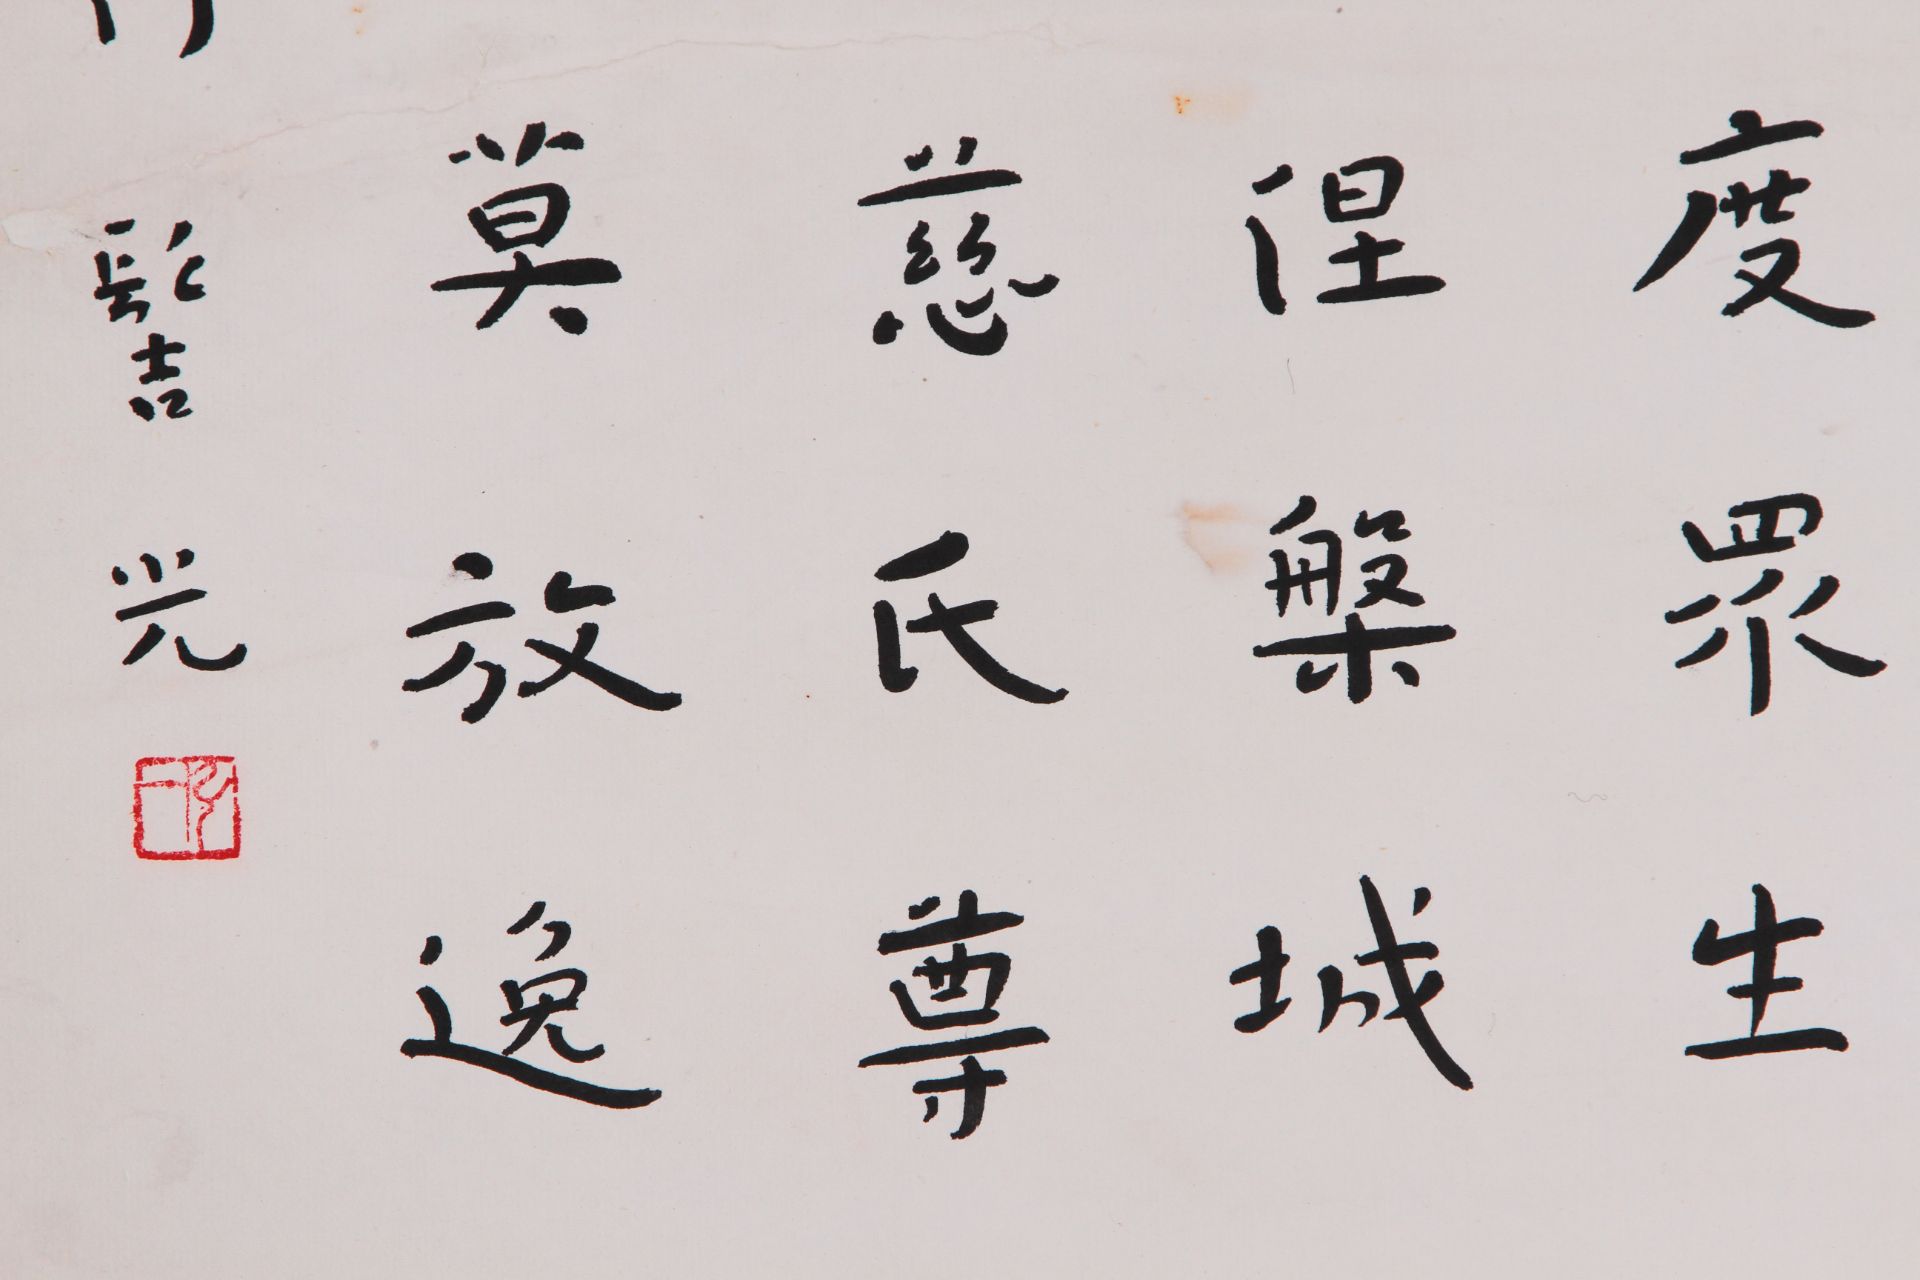 度眾生
涅槃城
慈氏尊
莫放逸
髻光